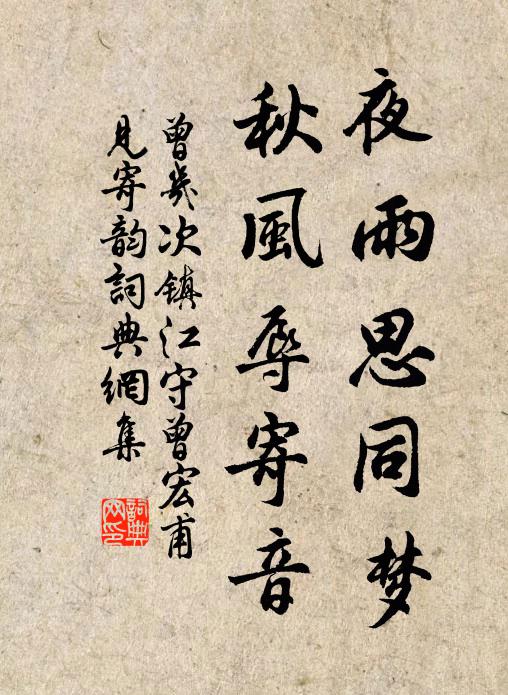 夜雨思同梦
秋風辱寄音
曾幾次镇江守曾宏甫
見寄韵詞典網集
詞典网印